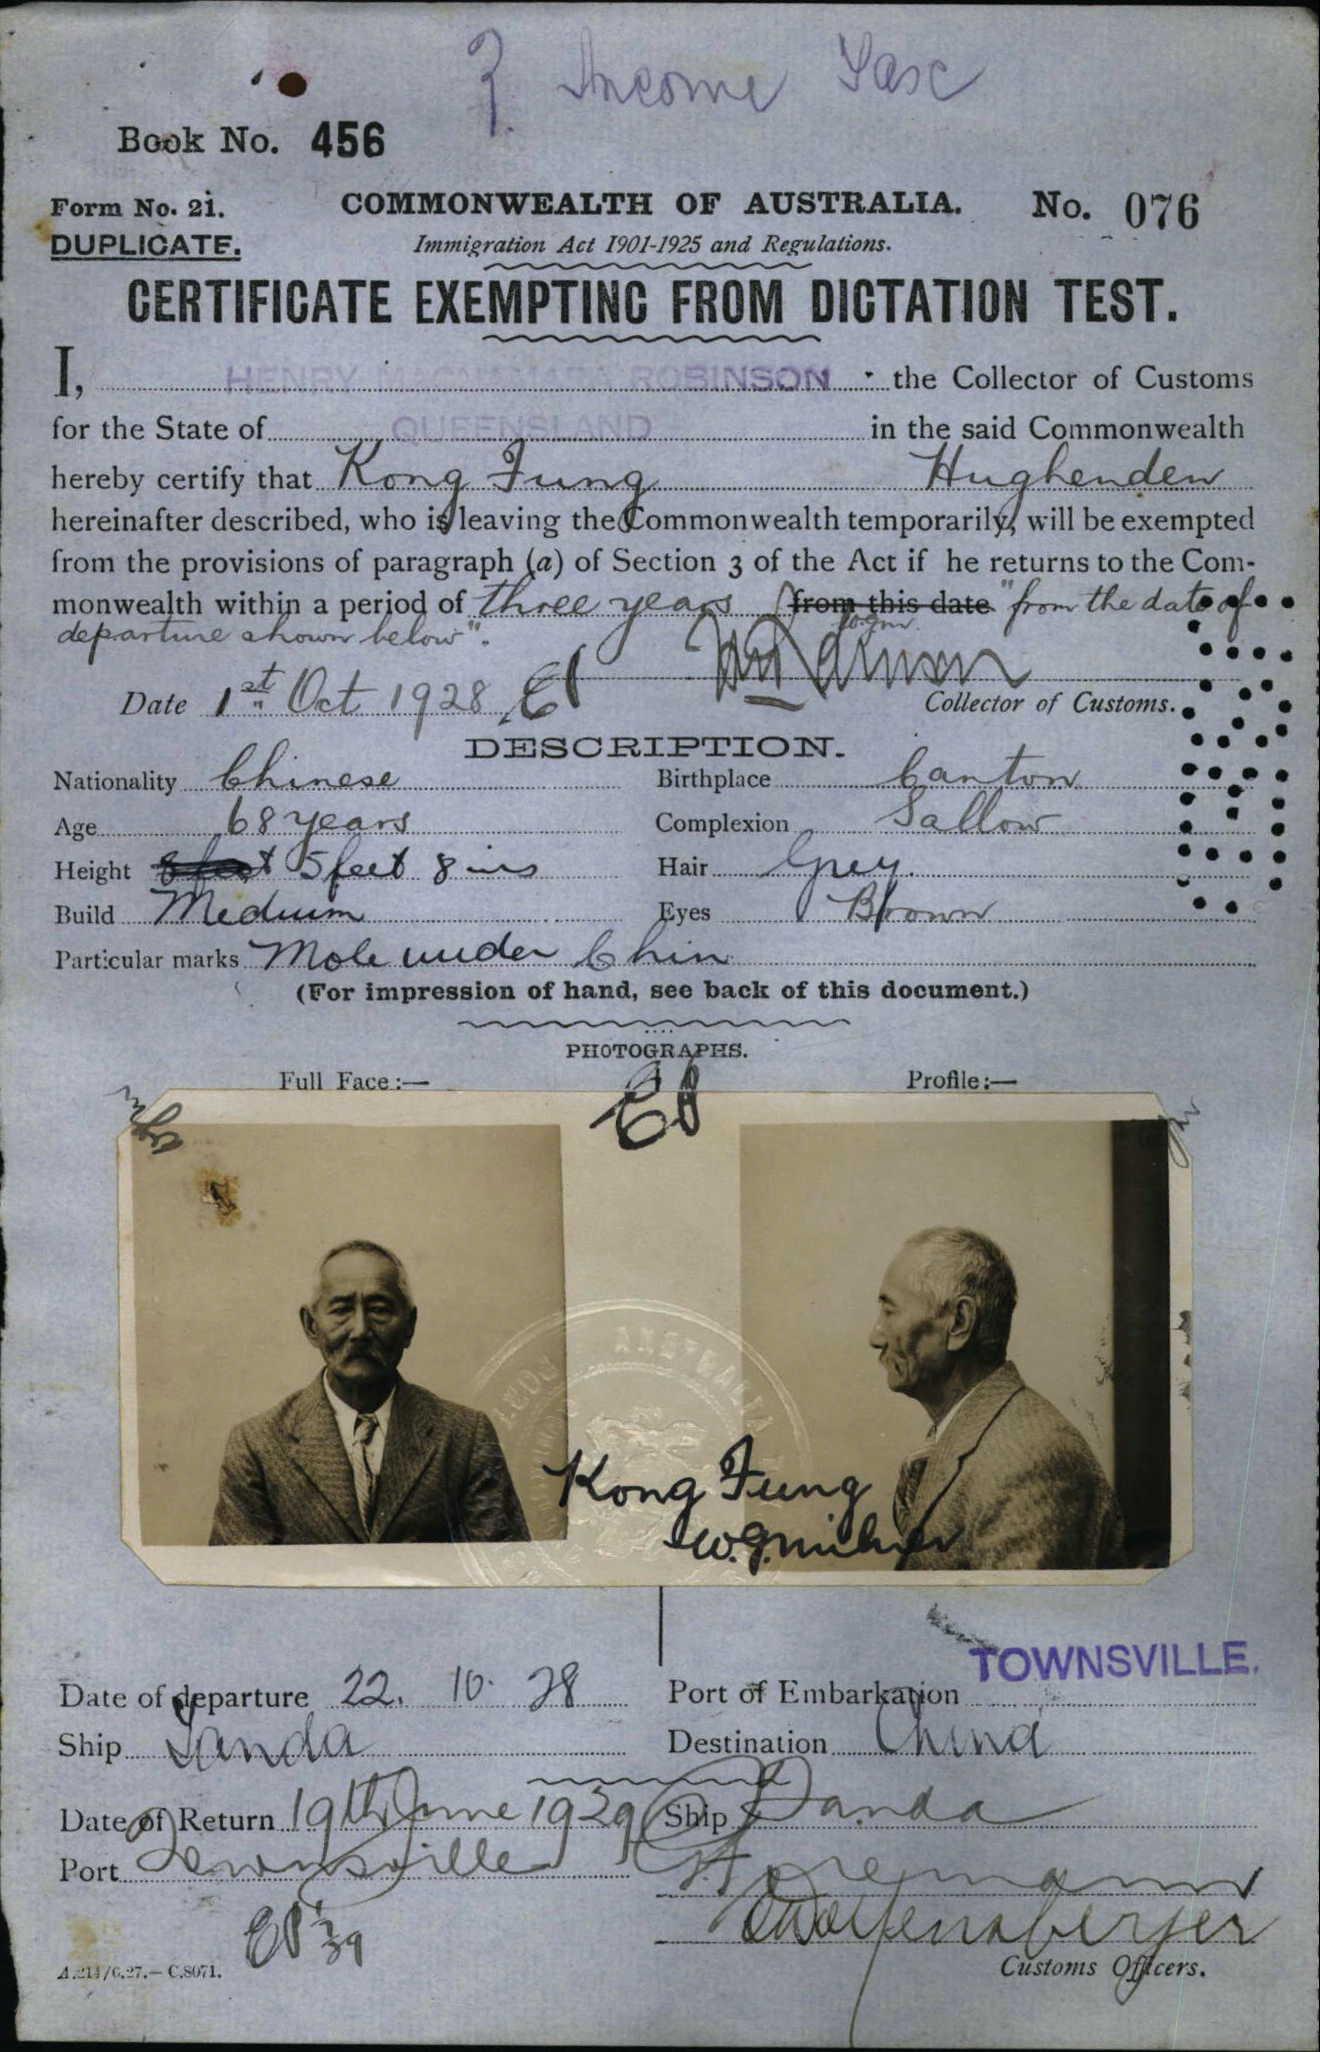 Income Tax
Book No. 456
Form No. 21. COMMONWEALTH OF AUSTRALIA. No. 076
DUPLICATE. Immigration Act 1901-1925 and Regulations.
CERTIFICATE EXEMPTING FROM DICTATION TEST.
I, HENRY MACNAMARA ROBINSON the Collector of Customs
for the State of QUEENSLAND in the said Commonwealth
hereby certify that Kong Fung Hughenden
hereinafter described, who is leaving the Commonwealth temporarily, will be exempted
from the provisions of paragraph (a) of Section 3 of the Act if he returns to the Com-
monwealth within a period of three years from this date "from the date of
departure shown below".
Date 1st Oct 1928 Collector of Customs.
DESCRIPTION.
Nationality Chinese Birthplace Canton
Age 68 years Complexion Sallow
Height 5 feet 8 ins Hair Grey.
Build Medium Eyes Brown
Particular marks Mole under Chin
(For impression of hand, see back of this document.)
PHOTOGRAPHS.
Full Face:— Profile:—
AUSTRALIA
Kong Fung
W.G. Milner
TOWNSVILLE.
Date of departure 22. 10. 28 Port of Embarkation
Ship Tanda Destination China
Date of Return 19th June 1929 Ship Tanda
Port Townsville
Customs Officers.
A.214/6.27.—C.8071.